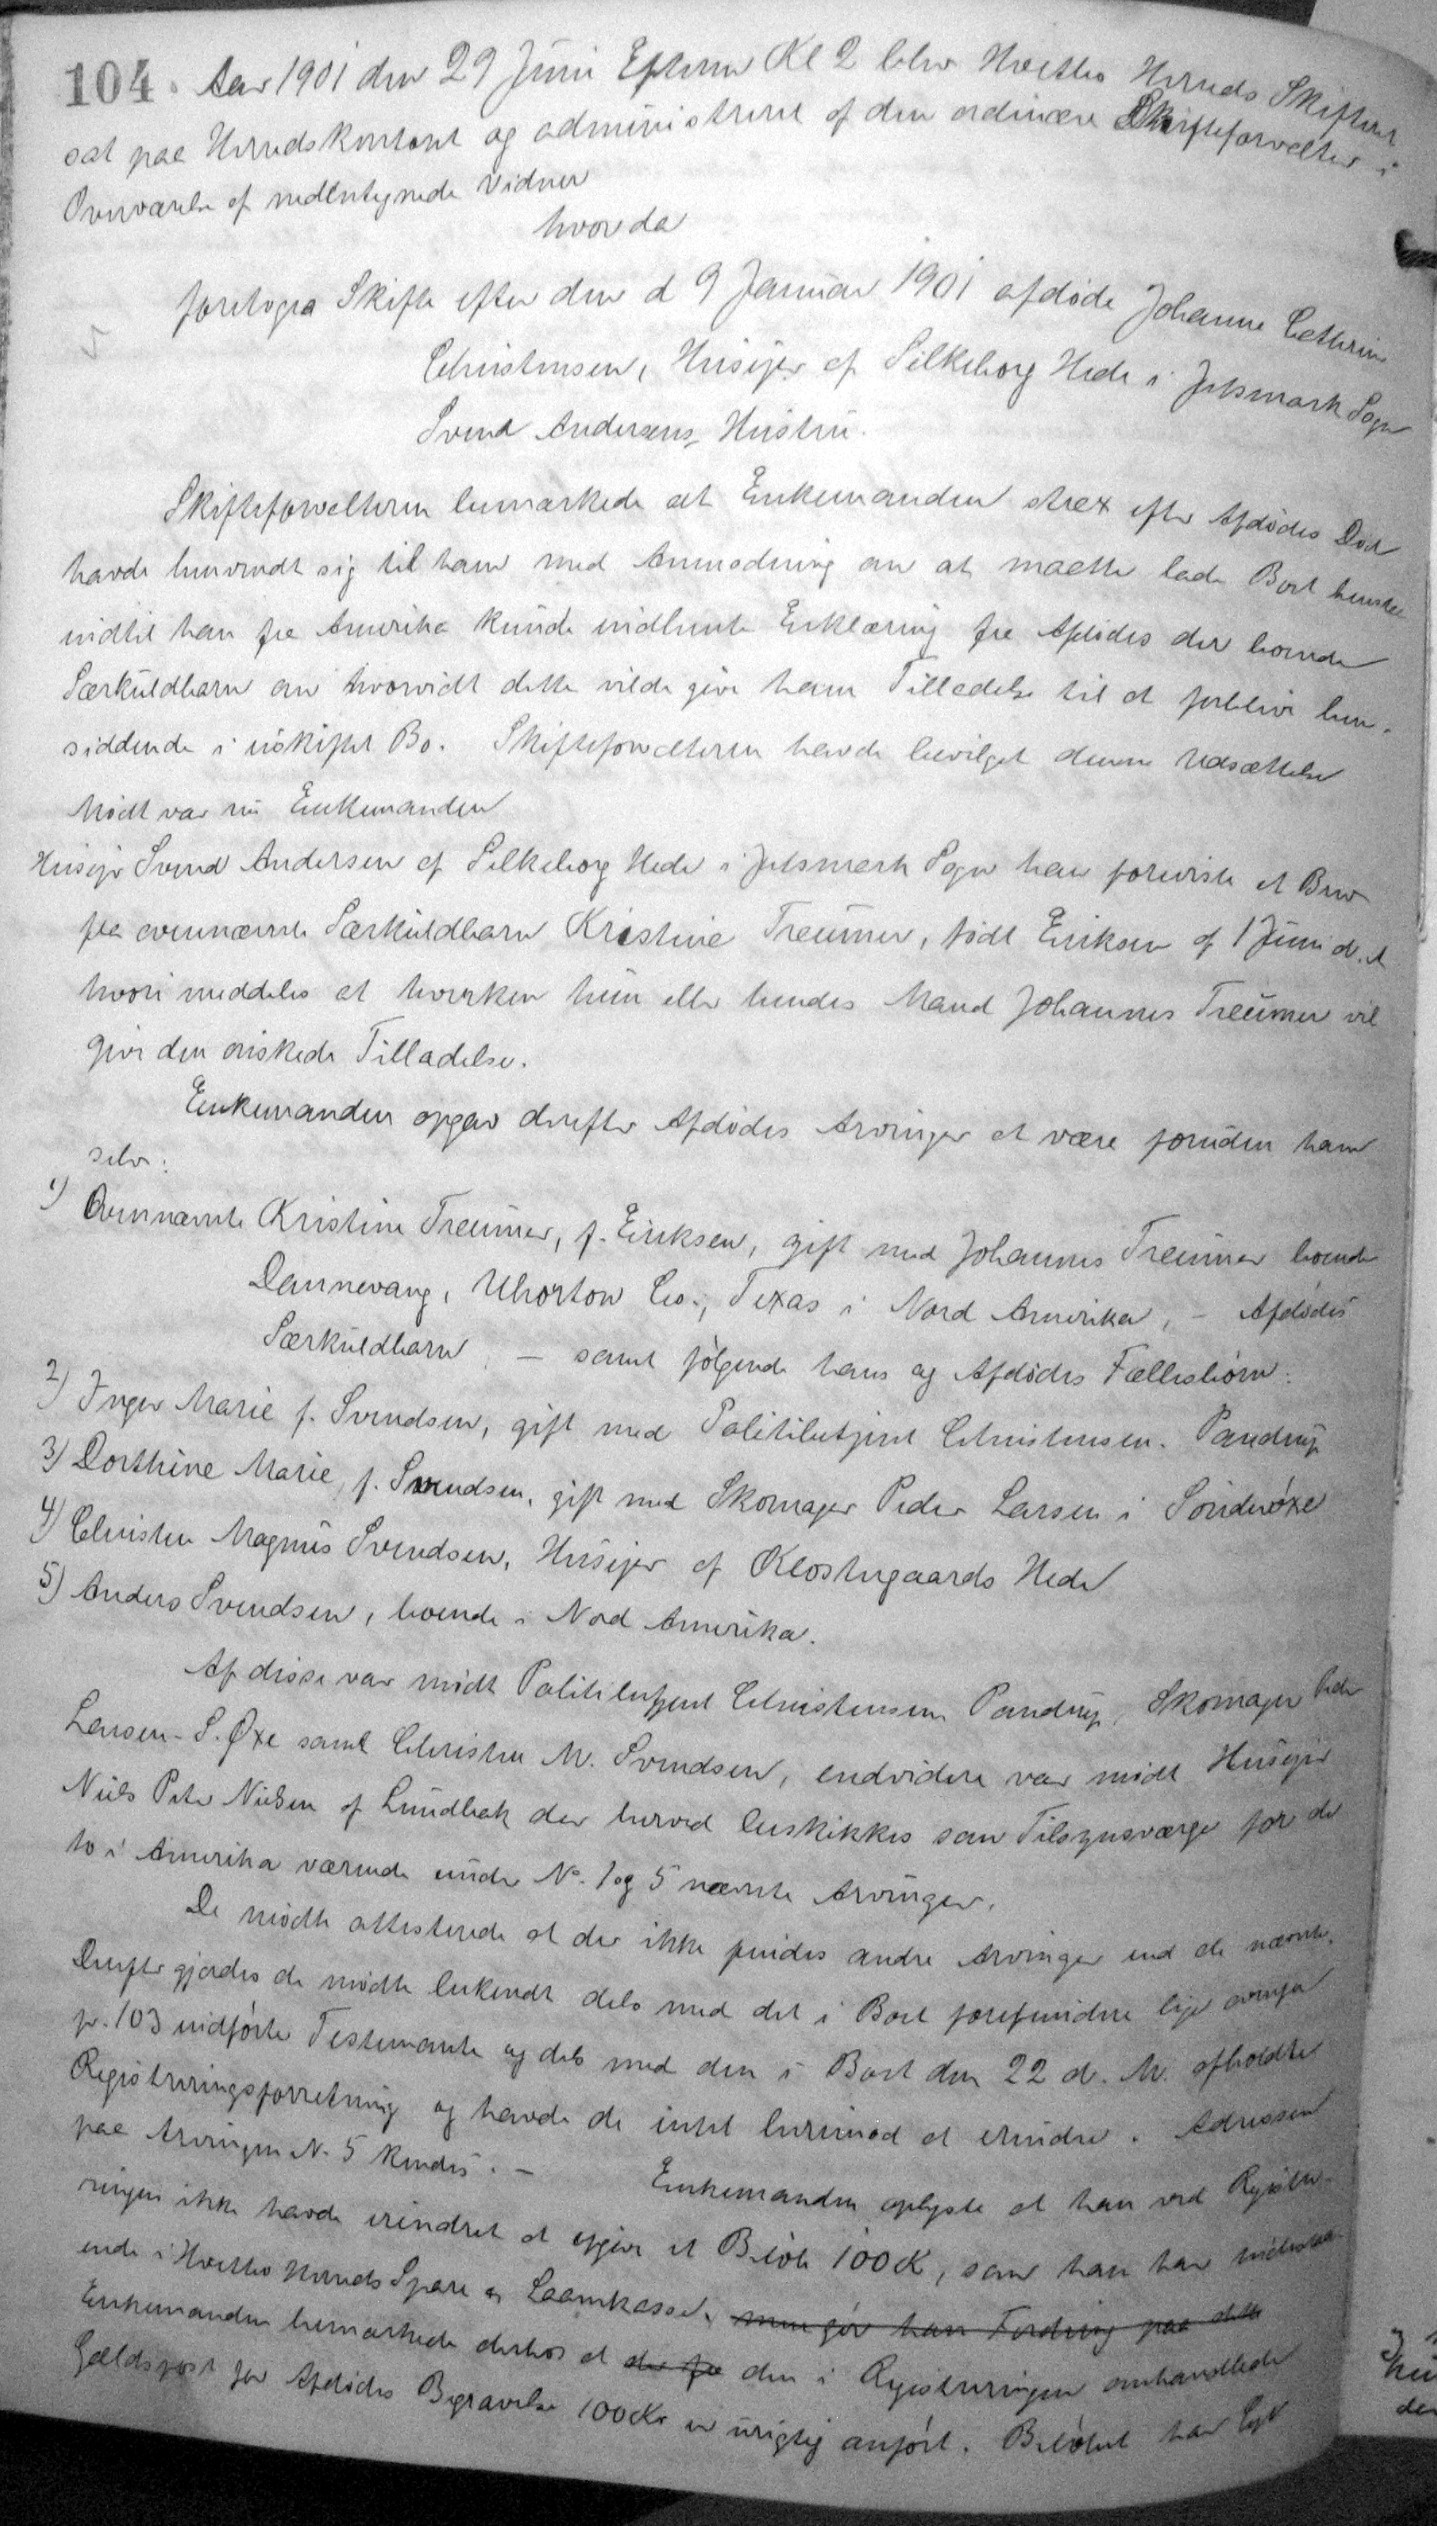 104. Aar 1901 den 29 Juni Efterm Kl 2 blev Hvetbo Herreds Skifteret
sat paa Herredskontoret og administreret af den ordinære Skifteforvalter i
Overværelse af nedentegnede Vidner
hvorda
foretoges Skifte efter den d 9 Januar 1901 afdøde Johanne Cathrine
Christensen, Husejer af Silkeborg Hede i Jetsmark Sogn
Svend Andersens Hustru.
Skifteforvalteren bemærkede at Enkemanden strax efter Afdødes Død
havde henvendt sig til ham med Anmodning om at maatte lade Boet henstaa
indtil han fra Amerika kunde indhente Erklæring fra Afdødes der boende
Særkuldbarn om hvorvidt dette vilde give ham Tilladelse til at forblive hen-
siddende i uskiftet Bo. Skifteforvalteren havde bevilget denne Udsættelse
Mødt var nu Enkemanden
Husejer Svend Andersen af Silkeborg Hede i Jetsmark Sogn han foreviste et Brev
fra ovennævnte Særkuldbarn Kristine Treumer, født Eriksen af 1 Juni d. A
hvori meddeles at hverken hun eller hendes Mand Johannes Treumer vil
give den ønskede Tilladelse.
Enkemanden opgav derefter Afdødes Arvinger at være foruden ham
selv:
1) Ovennævnte Kristine Treumer, f. Eriksen, gift med Johannes Treumer boende
Dannevang, Whorton Co., Texas i Nord Amerika, – Afdødes
Særkuldbarn, – samt følgende hans og Afdødes Fællesbørn:
2) Inger Marie f. Svendsen, gift med Politibetjent Christensen. Pandrup
3) Dorthine Marie, f. Svendsen, gift med Skomager Peder Larsen i Sønderøxe
4) Christen Magnus Svendsen, Husejer af Klostergaards Hede
5) Anders Svendsen, boende i Nord Amerika.
Af disse var mødt Politibetjent Christensen Pandrup, Skomager Peder
Larsen - S. Øxe samt Christen M. Svendsen, endvidere var mødt Husejer
Niels Peter Nielsen af Lundbak der herved beskikkes som Tilsynsværge for de
to i Amerika værende under No. 1 og 5 nævnte Arvinger.
De mødte attesterede at der ikke findes andre Arvinger end de nævnte.
Derefter gjordes de mødte bekendt dels med det i Boet forefundne lige ovenfor
p. 103 indførte Testamente og dels med den i Boet den 22 d. M. afholdte
Registreringsforretning og havde de intet herimod at erindre. Adressen
paa Arvingen N. 5 kendes. – Enkemanden oplyste at han ved Registre-
ringen ikke havde erindret at opgive et Beløb 100 K, som han har indestaa-
ende i Hvetbo Herreds Spare og Laanekasse. men gør han Fordring paa dette
Enkemanden bemærkede derhos at der fra den i Registreringen omhandlede
Gældspost for Afdødes Begravelse 100 Kr er urigtig anført. Beløbet har